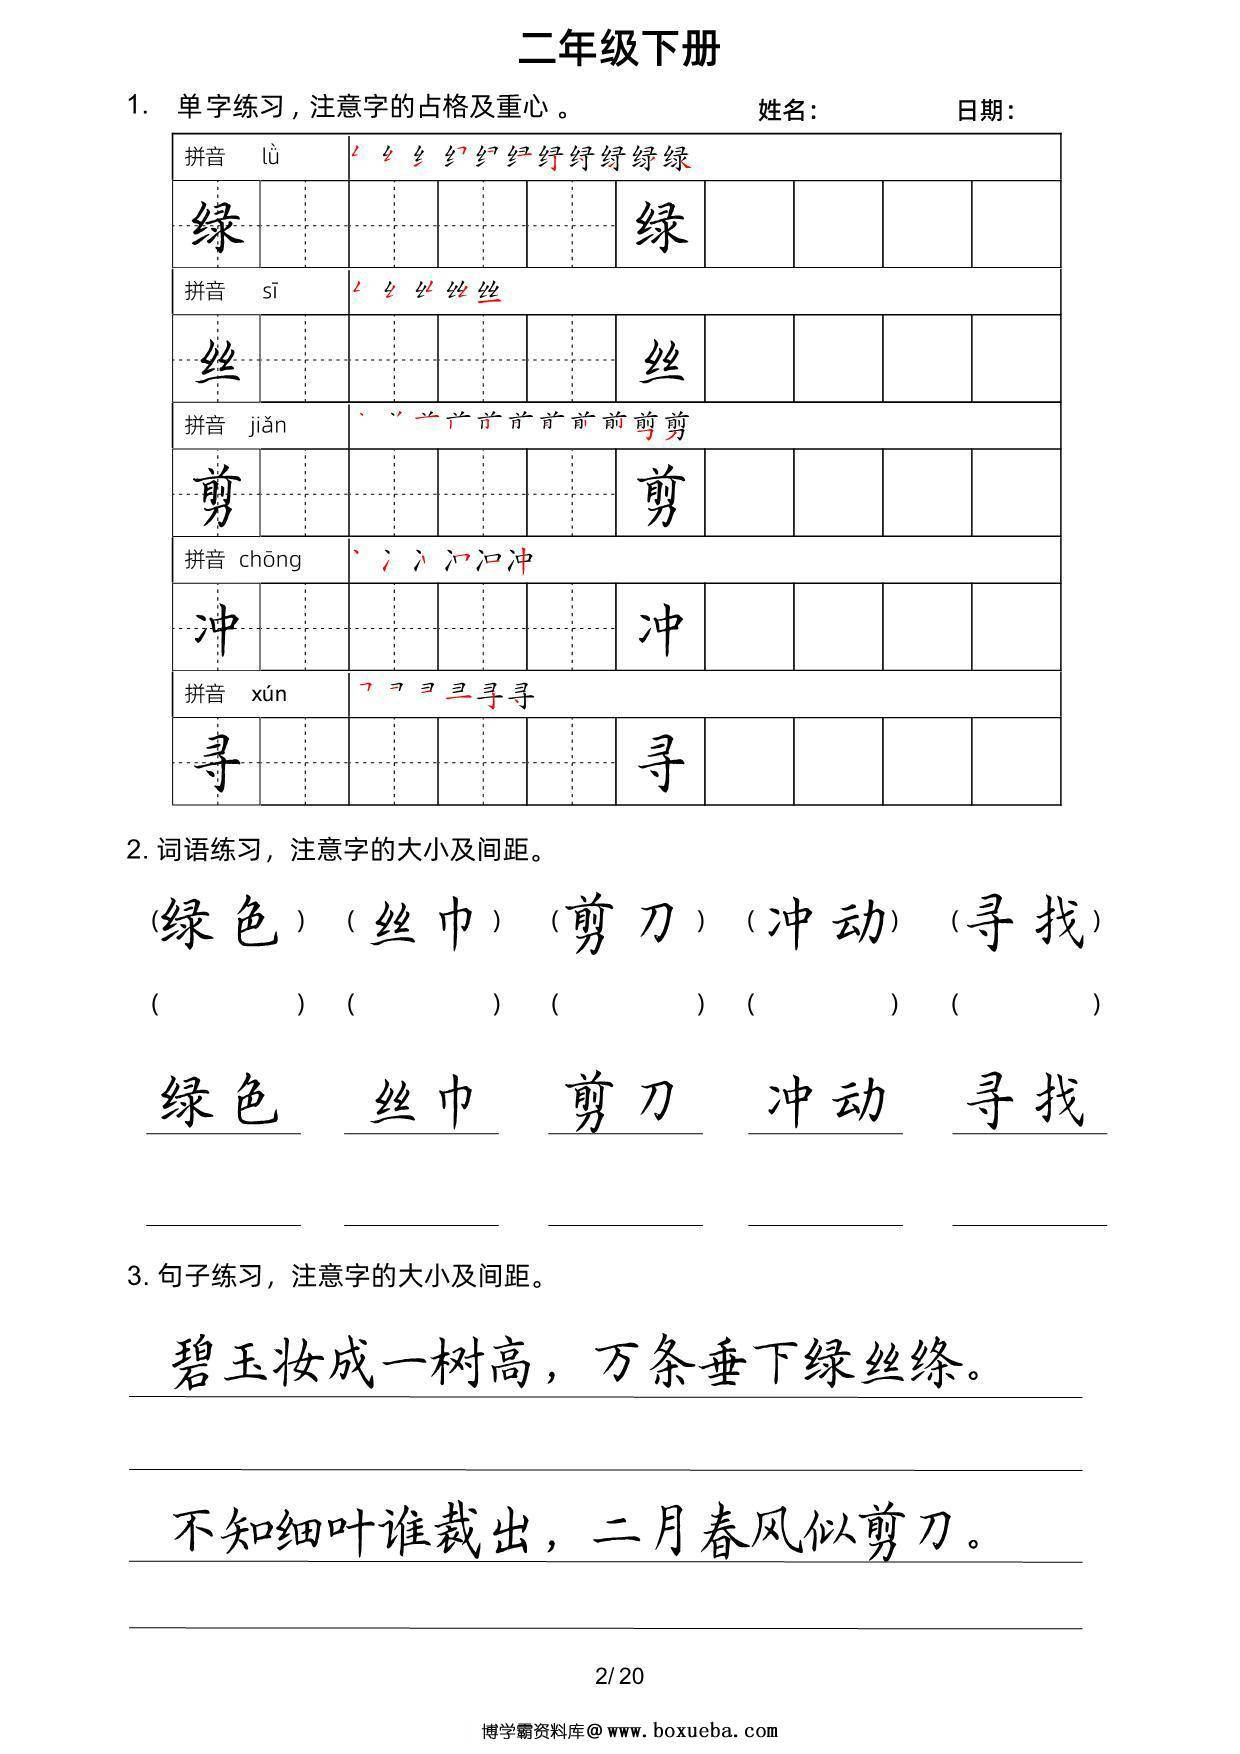 二年级下册
1. 单字练习,注意字的占格及重心。 姓名: 日期:
拼音 lǜ
绿 绿
拼音 sī
丝 丝
拼音 jiǎn
剪 剪
拼音 chōng
冲 冲
拼音 xún
寻 寻
2. 词语练习，注意字的大小及间距。
(绿色) (丝巾) (剪刀) (冲动) (寻找)
( ) ( ) ( ) ( ) ( )
绿色 丝巾 剪刀 冲动 寻找
3. 句子练习，注意字的大小及间距。
碧玉妆成一树高，万条垂下绿丝绦。
不知细叶谁裁出，二月春风似剪刀。
2/20
博学霸资料库@www.boxueba.com